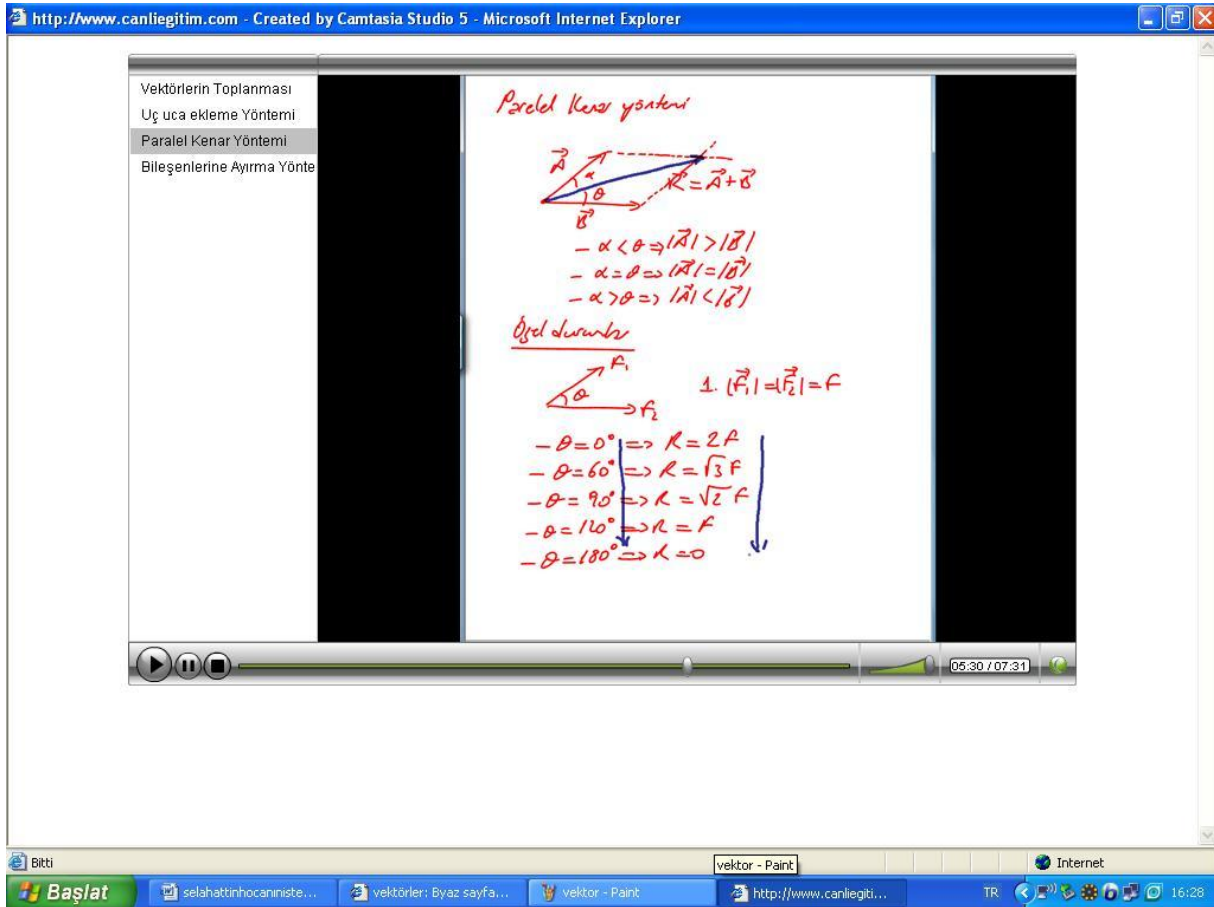 http://www.canliegitim.com - Created by Camtasia Studio 5 - Microsoft Internet Explorer
Vektörlerin Toplanması
Uç uca ekleme Yöntemi
Paralel Kenar Yöntemi
Bileşenlerine Ayırma Yönte
Paralel Kenar yöntemi
A⃗
α
θ
R⃗ = A⃗ + B⃗
B⃗
- α < θ => |A⃗| > |B⃗|
- α = θ => |A⃗| = |B⃗|
- α > θ => |A⃗| < |B⃗|
Özel durumlar
F₁
θ
F₂
1. |F⃗₁| = |F⃗₂| = F
- θ = 0° => R = 2F
- θ = 60° => R = √3 F
- θ = 90° => R = √2 F
- θ = 120° => R = F
- θ = 180° => R = 0
05:30 / 07:31
Bitti
vektor - Paint
Internet
Başlat
selahattinhocanıniste...
vektörler: Byaz sayfa...
vektor - Paint
http://www.canliegiti...
TR
16:28